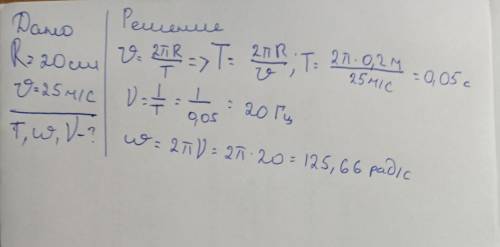 Дано
R = 20 см
υ = 25 м/с
T, ω, ν - ?
Решение
υ = 2πR/T => T = 2πR/υ ; T = 2π · 0,2 м / 25 м/с = 0,05 с
ν = 1/T = 1/0,05 = 20 Гц
ω = 2πν = 2π · 20 = 125,66 рад/с